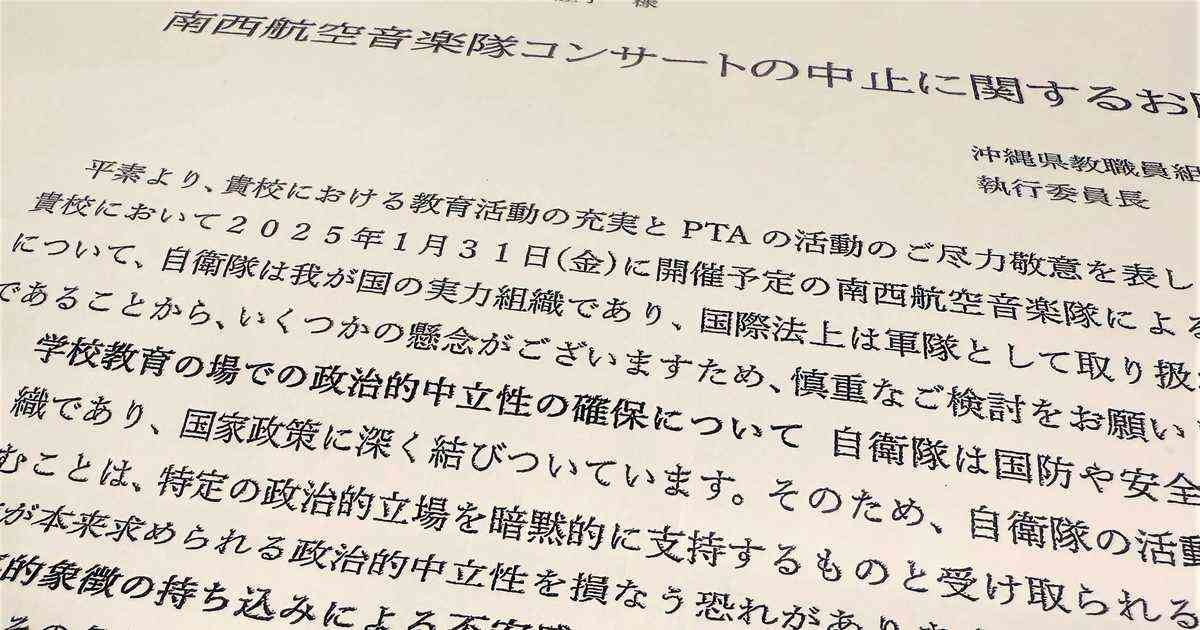 様
南西航空音楽隊コンサートの中止に関するお
沖縄県教職員組
執行委員長
平素より、貴校における教育活動の充実とPTAの活動のご尽力敬意を表し
貴校において２０２５年１月３１日(金)に開催予定の南西航空音楽隊によ
について、自衛隊は我が国の実力組織であり、国際法上は軍隊として取り扱
であることから、いくつかの懸念がございますため、慎重なご検討をお願い
学校教育の場での政治的中立性の確保について 自衛隊は国防や安全
織であり、国家政策に深く結びついています。そのため、自衛隊の活動
むことは、特定の政治的立場を暗黙的に支持するものと受け取られる
が本来求められる政治的中立性を損なう恐れがあり
的象徴の持ち込みによる不安